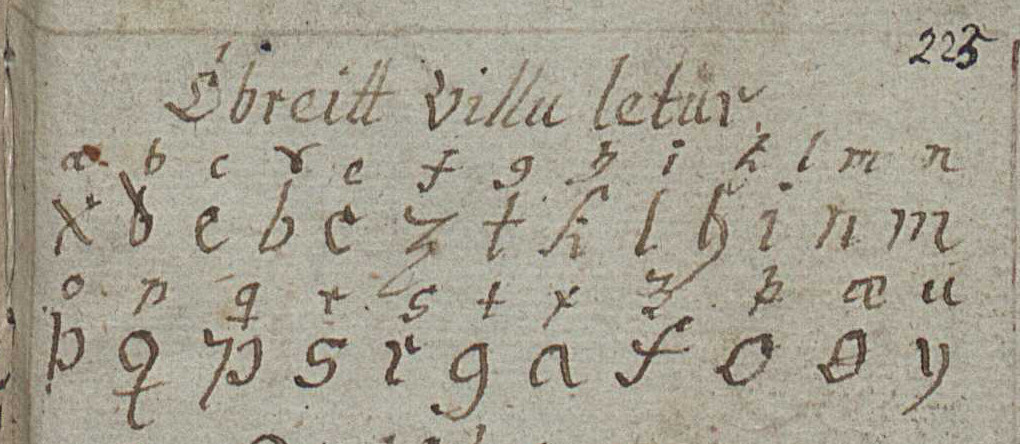 225
Óbreitt villu letur.
a b c d e f g h i k l m n
x d e b c z t k l h i n m
o p q r s t x z þ æ u
þ q p s r g a f o ø y